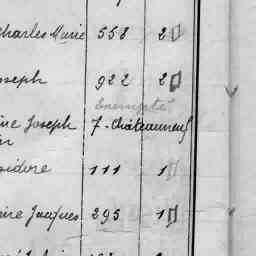 Charles Marie 558 2
Joseph 922 2
Exempté
Joseph 7. Châteauneuf
Isidore 111 1
Jacques 295 1